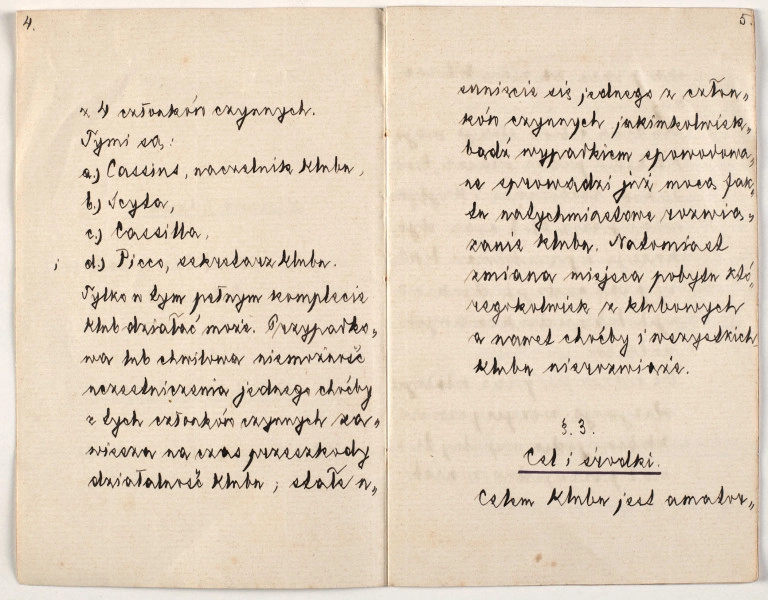 4.
z 4 członków czynnych.
Tymi są:
a.) Cassius, naczelnik klubu,
b.) Scyta,
c.) Cassilla,
i d.) Picco, sekretarz klubu.
Tylko w tym pełnym komplecie
klub działać może. Przypadko„
wa lub chwilowa niemożność
uczestniczenia jednego choćby
z tych członków czynnych za„
wiesza na czas przeszkody
działalność klubu; stałe u„
5.
sunięcie się jednego z człon„
ków czynnych jakimkolwiek„
bądź wypadkiem spowodowa„
ne sprowadzi już mocą fak„
tu natychmiastowe rozwią„
zanie klubu. Natomiast
zmiana miejsca pobytu któ„
regokolwiek z klubowych
a nawet choćby i wszystkich
klubu nierozwiąże.
§. 3.
Cel i środki.
Celem klubu jest amator„